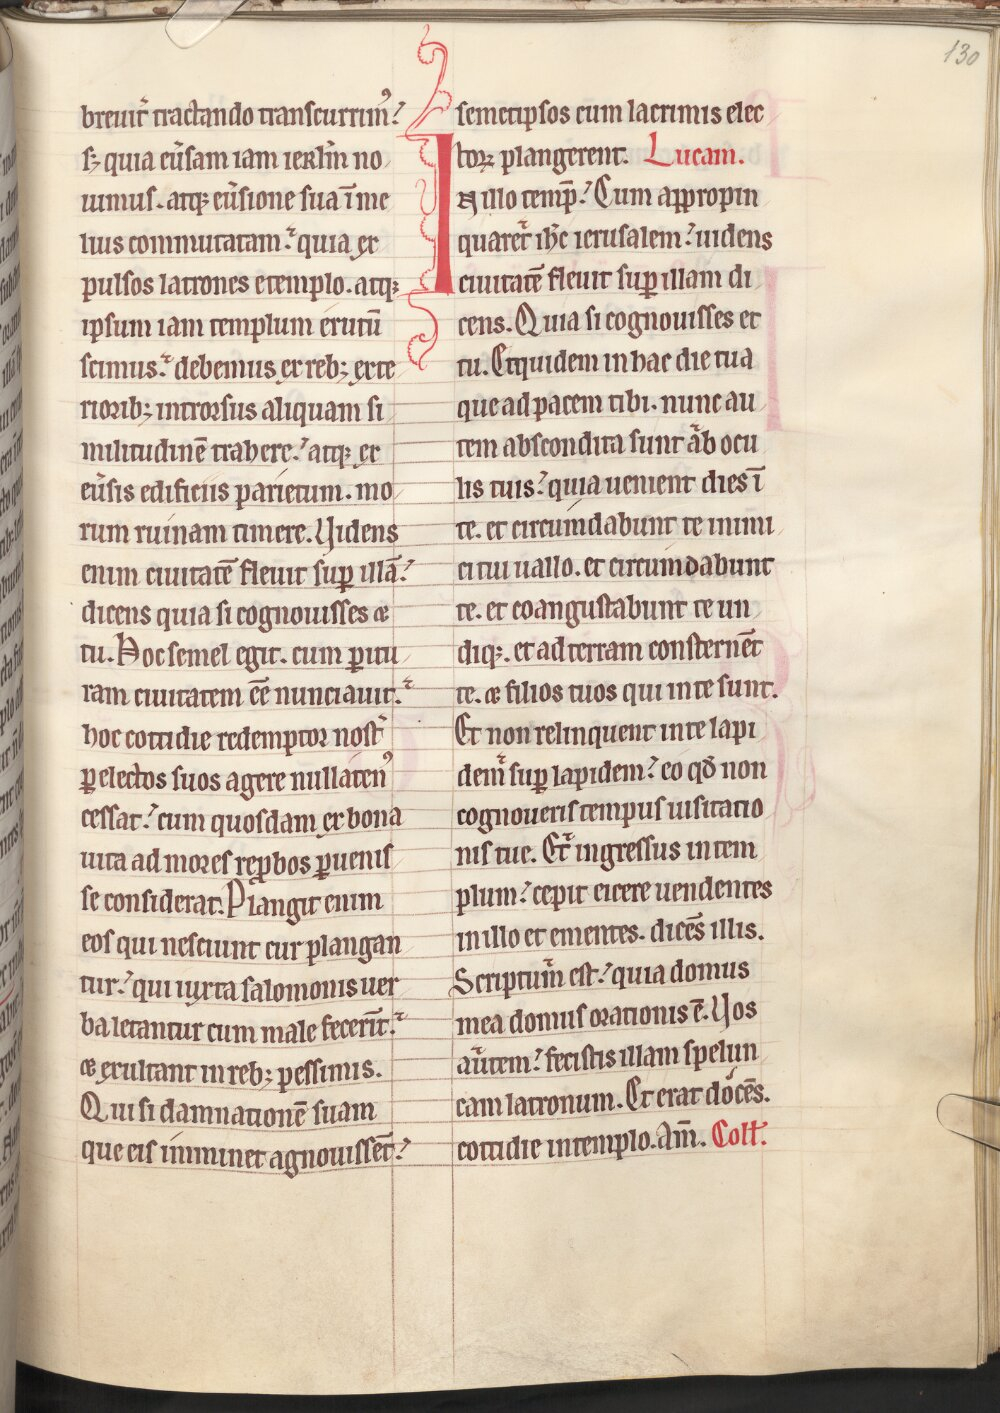 130
breuit̄ tractando transcurrim᷒.
sꝫ quia eūsam iam ierl̄m no
uimus. atqꝫ eūsione sua ī me
lius commutatam. quia ex
pulsos latrones e templo. atqꝫ
ipsum iam templum erutū
scimus. debemus ex rebꝫ exte
rioribꝫ introrsus aliquam si
militudinē trahere. atqꝫ ex
eūsis edificiis parietum. mo
rum ruinam timere. Uidens
enim ciuitatē fleuit suꝑ illā.
dicens quia si cognouisses &
tu. Hoc semel egit. cum ꝑitu
ram ciuitatem eē nunciauit.
hoc cottidie redemptor nost̄
ꝑ electos suos agere nullaten᷒
cessat. cum quosdam ex bona
uita ad mores rep̄bos ꝑuenis
se considerat. Plangit enim
eos qui nesciunt cur plangan
tur. qui iuxta salomonis uer
ba letantur cum male fecerīt.
& exultant in rebꝫ pessimis.
Qui si damnationē suam
que eis imminet agnouissēt.
semetipsos cum lacrimis elec
toꝝ plangerent. Lucam.
IN illo temp̄. Cum appropin
quaret̄ ih̄c ierusalem. uidens
ciuitatē fleuit suꝑ illam di
cens. Quia si cognouisses et
tu. Et quidem in hac die tua
que ad pacem tibi. nunc au
tem abscondita sunt ab ocu
lis tuis. quia uenient dies ī
te. et circumdabunt te inimi
ci tui uallo. et circumdabunt
te. et coangustabunt te un
diqꝫ. et ad terram consternēt
te. & filios tuos qui in te sunt.
Et non relinquent in te lapi
dem suꝑ lapidem. eo qđ non
cognoueris tempus uisitatio
nis tue. Et ingressus in tem
plum. cepit eicere uendentes
in illo et ementes. dicēs illis.
Scriptum est. quia domus
mea domus orationis ē. Uos
autem. fecistis illam spelun
cam latronum. Et erat docēs.
cottidie in templo. Am̄. Coll̄.